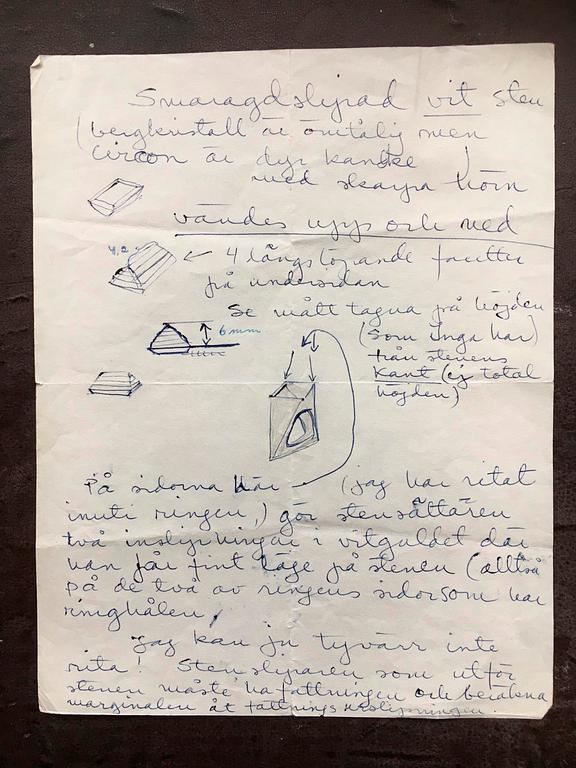 Smaragdslipad vit sten
(bergkristall är ömtålig men
circon är dyr kanske)
med skarpa hörn
vändes upp och ned
4,2
4 långslöpande facetter
på undersidan
Se mått tagna på höjden
6 mm
(som Inga har)
från stenens
Kant (ej total
höjden)
På sidorna här (jag har ritat
inuti ringen,) gör stensättaren
två inslipningar i vitguldet där
han får fint läge på stenen (alltså
på de två av ringens sidor som har
ringhålen,
Jag kan ju tyvärr inte
rita! Stensliparen som utför
stenen måste ha fattningen och beräkna
marginalen åt fattnings inslipningen.